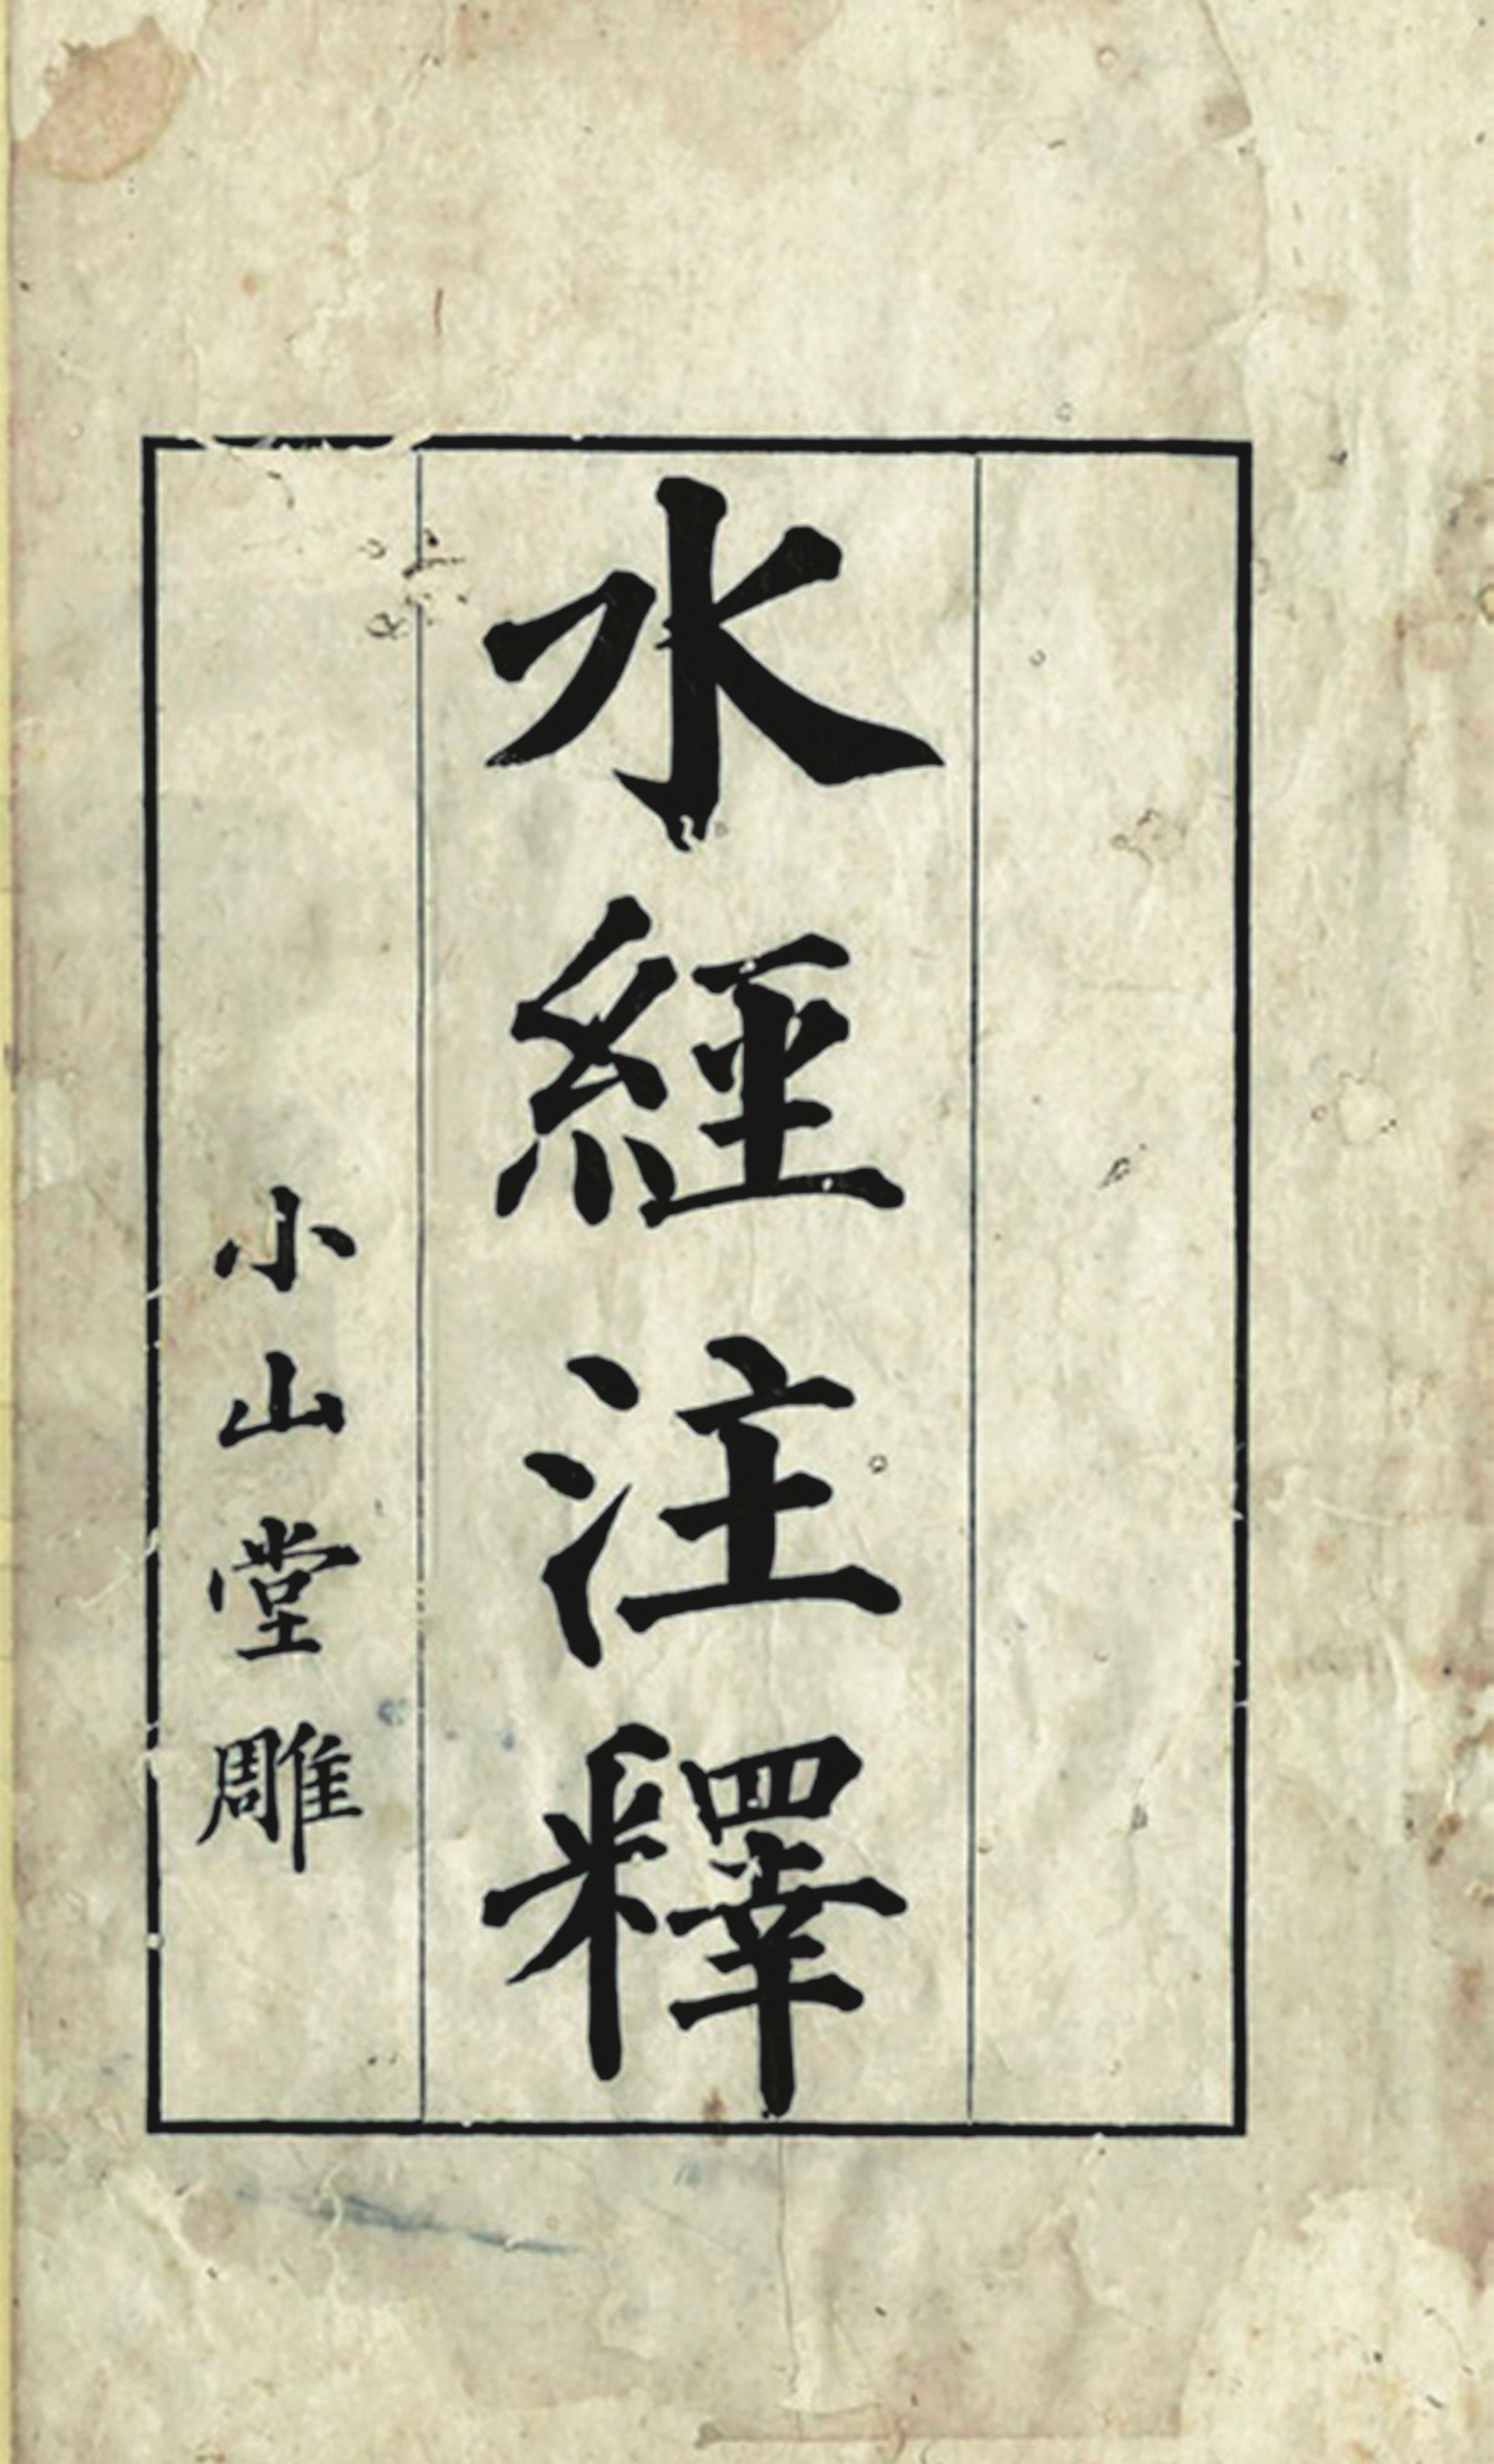 水經注釋
小山堂雕